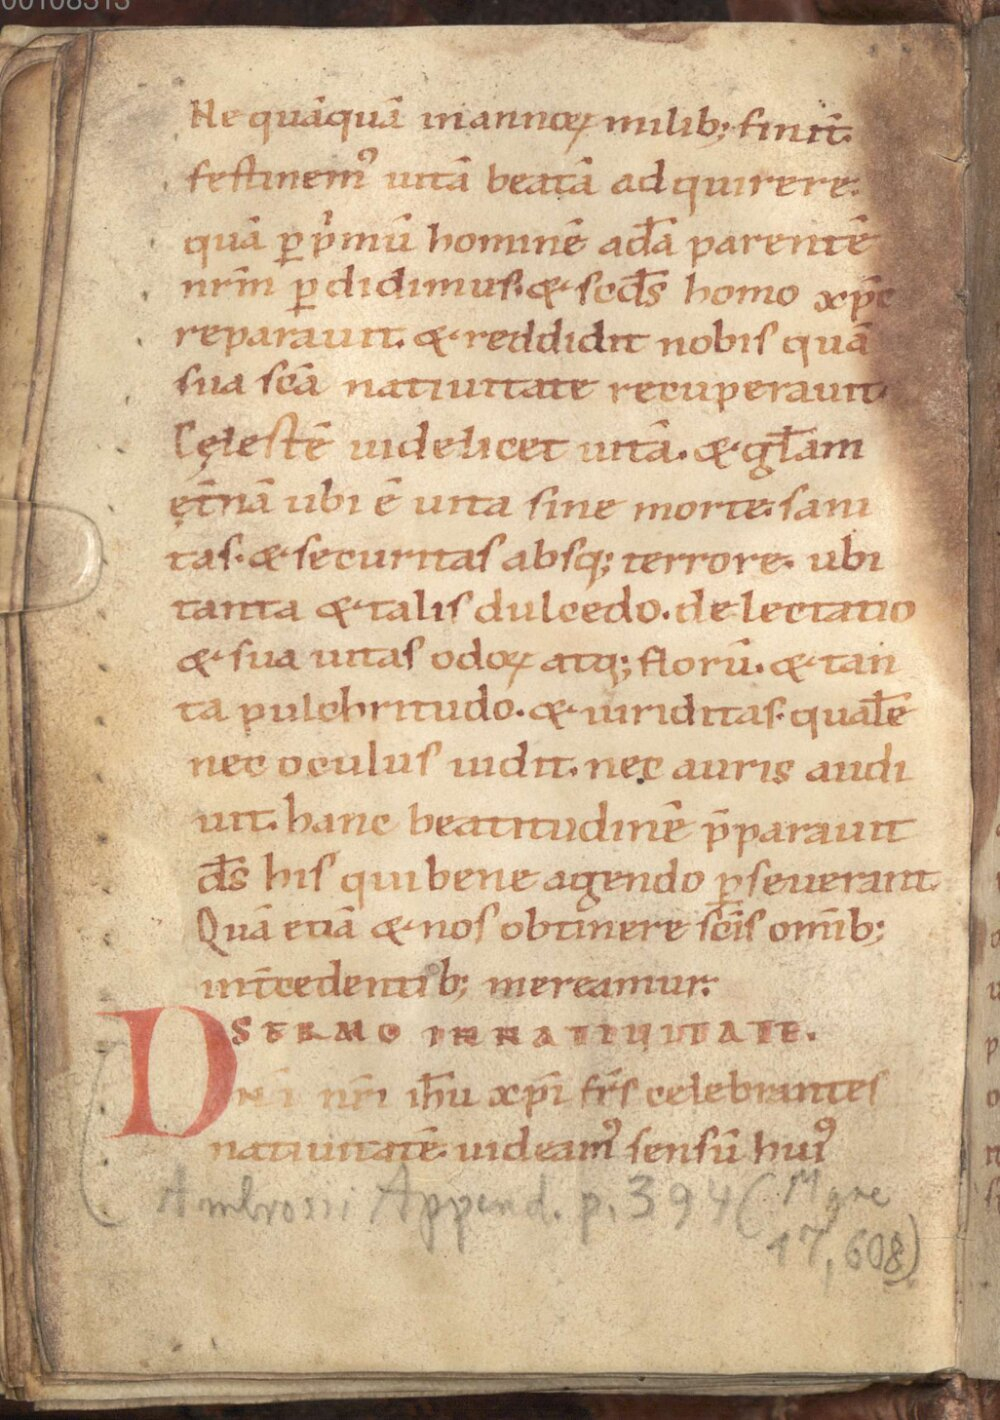 00108313
Nequāquā in annoꝝ milib; finit̄.
festinemꝰ uitā beatā adquirere.
quā ꝑ p̓mū hominē adā parentē
nr̄m ꝑdidimus. & scd̄s homo xp̄c
reparauit. & reddidit nobis quā
sua sc̄a natiuitate recuperauit.
Cęlestē uidelicet uitā. & gl̄am
et̄nā ubi ē uita sine morte. sani
tas. & securitas absq; terrore. ubi
tanta & talis dulcedo. delectatio
& suauitas odoꝝ atq; florū. & tan
ta pulchritudo. & uiriditas. qualē
nec oculus uidit. nec auris audi
uit. hanc beatitudinē p̄parauit
d̄s his qui bene agendo ꝑseuerant.
Quā etiā & nos obtinere sc̄is om̄ib;
int̄cedentib; mereamur.
SERMO IN NATIUITATE.
DNI nr̄i ih̄u xp̄i fr̄s celebrantes
natiuitatē. uideamꝰ sensū huiꝰ
Ambrosii Append. p. 394 (Migne
17, 608)